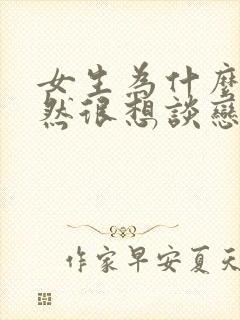 女生為什麼
然很想談戀
作家早安夏天